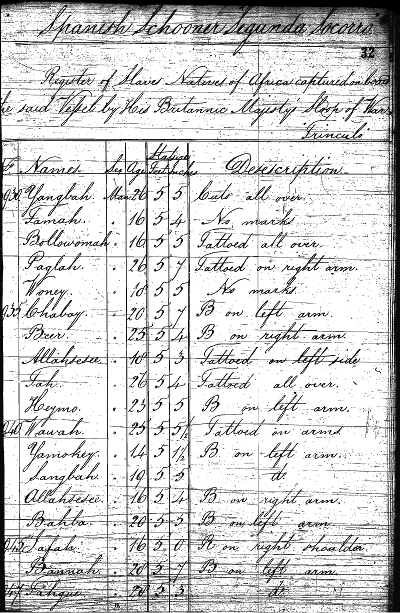 Spanish Schooner Segunda Socorro
32
Register of Slaves Natives of Africa captured on board
the said Vessel by His Britannic Majesty's Sloop of War
Trinculo
Stature
No Names. Sex Age Feet Inches Desescription.
930 Yangbah. Man 26 5 5 Cuts all over.
Famah. . 16 5 4 No marks
Bollowomah . 16 5 5 Tattoed all over.
Paglah. . 26 5 7 Tattoed on right arm.
Woney. . 18 5 5 No marks
935 Chaboy . 20 5 7 B on left arm.
Beer. . 25 5 4 B on right arm
Allahsesee. . 18 5 3 Tattoed on left side
Fah. . 26 5 4 Tattoed all over.
Heymo. . 23 5 5 B on left arm.
940 Wawah. . 25 5 5½ Tattoed on arms
Yamohey. . 14 5 1½ B on left arm.
Sangbah. . 19 5 5 do.
Allahsesee . 16 5 4 B on right arm.
Bahba. . 20 5 5 B on left arm
945 Safah. . 16 5 0 R on right shoulder
Bannah. . 20 5 7 B on left arm
5 5 do.